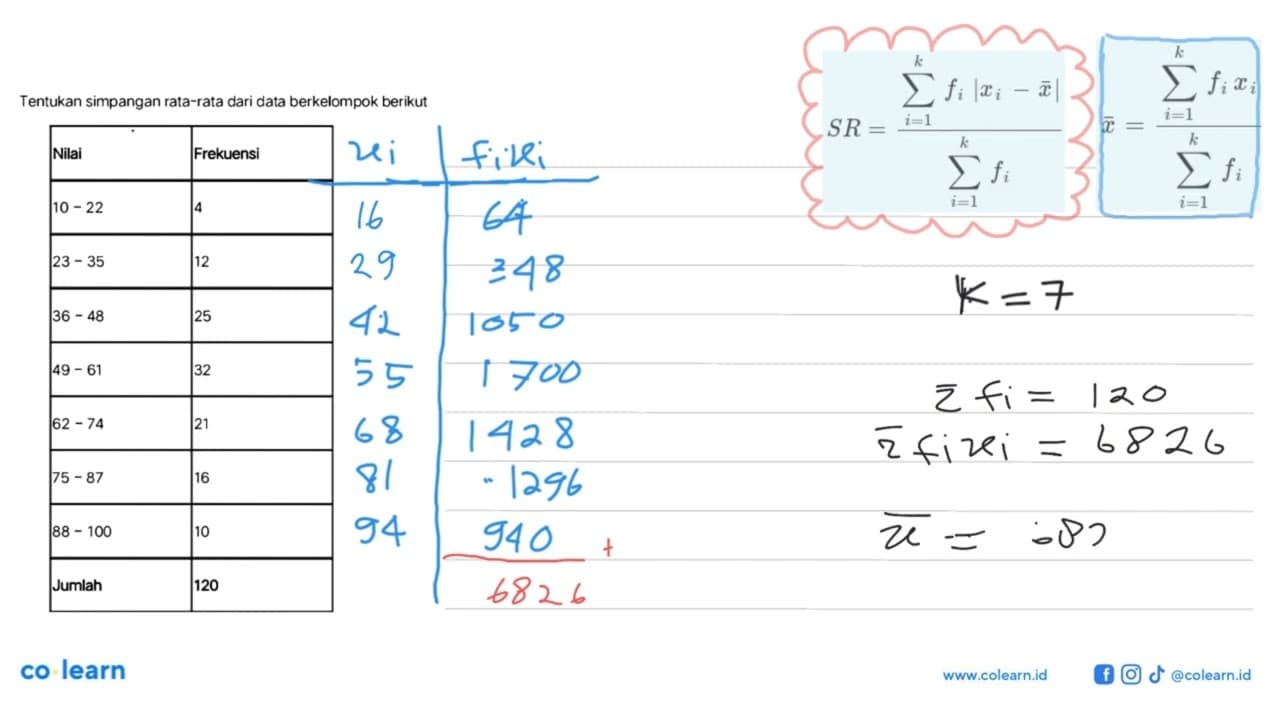 Tentukan simpangan rata-rata dari data berkelompok berikut
Nilai Frekuensi xi fixi
10 - 22 4 16 64
23 - 35 12 29 348
36 - 48 25 42 1050
49 - 61 32 55 1700
62 - 74 21 68 1428
75 - 87 16 81 1296
88 - 100 10 94 940 +
Jumlah 120 6826
SR = \frac{\sum_{i=1}^{k} f_i |x_i - \bar{x}|}{\sum_{i=1}^{k} f_i}
\bar{x} = \frac{\sum_{i=1}^{k} f_i x_i}{\sum_{i=1}^{k} f_i}
K = 7
Σ fi = 120
Σ fixi = 6826
x̄ =
co learn
www.colearn.id @colearn.id